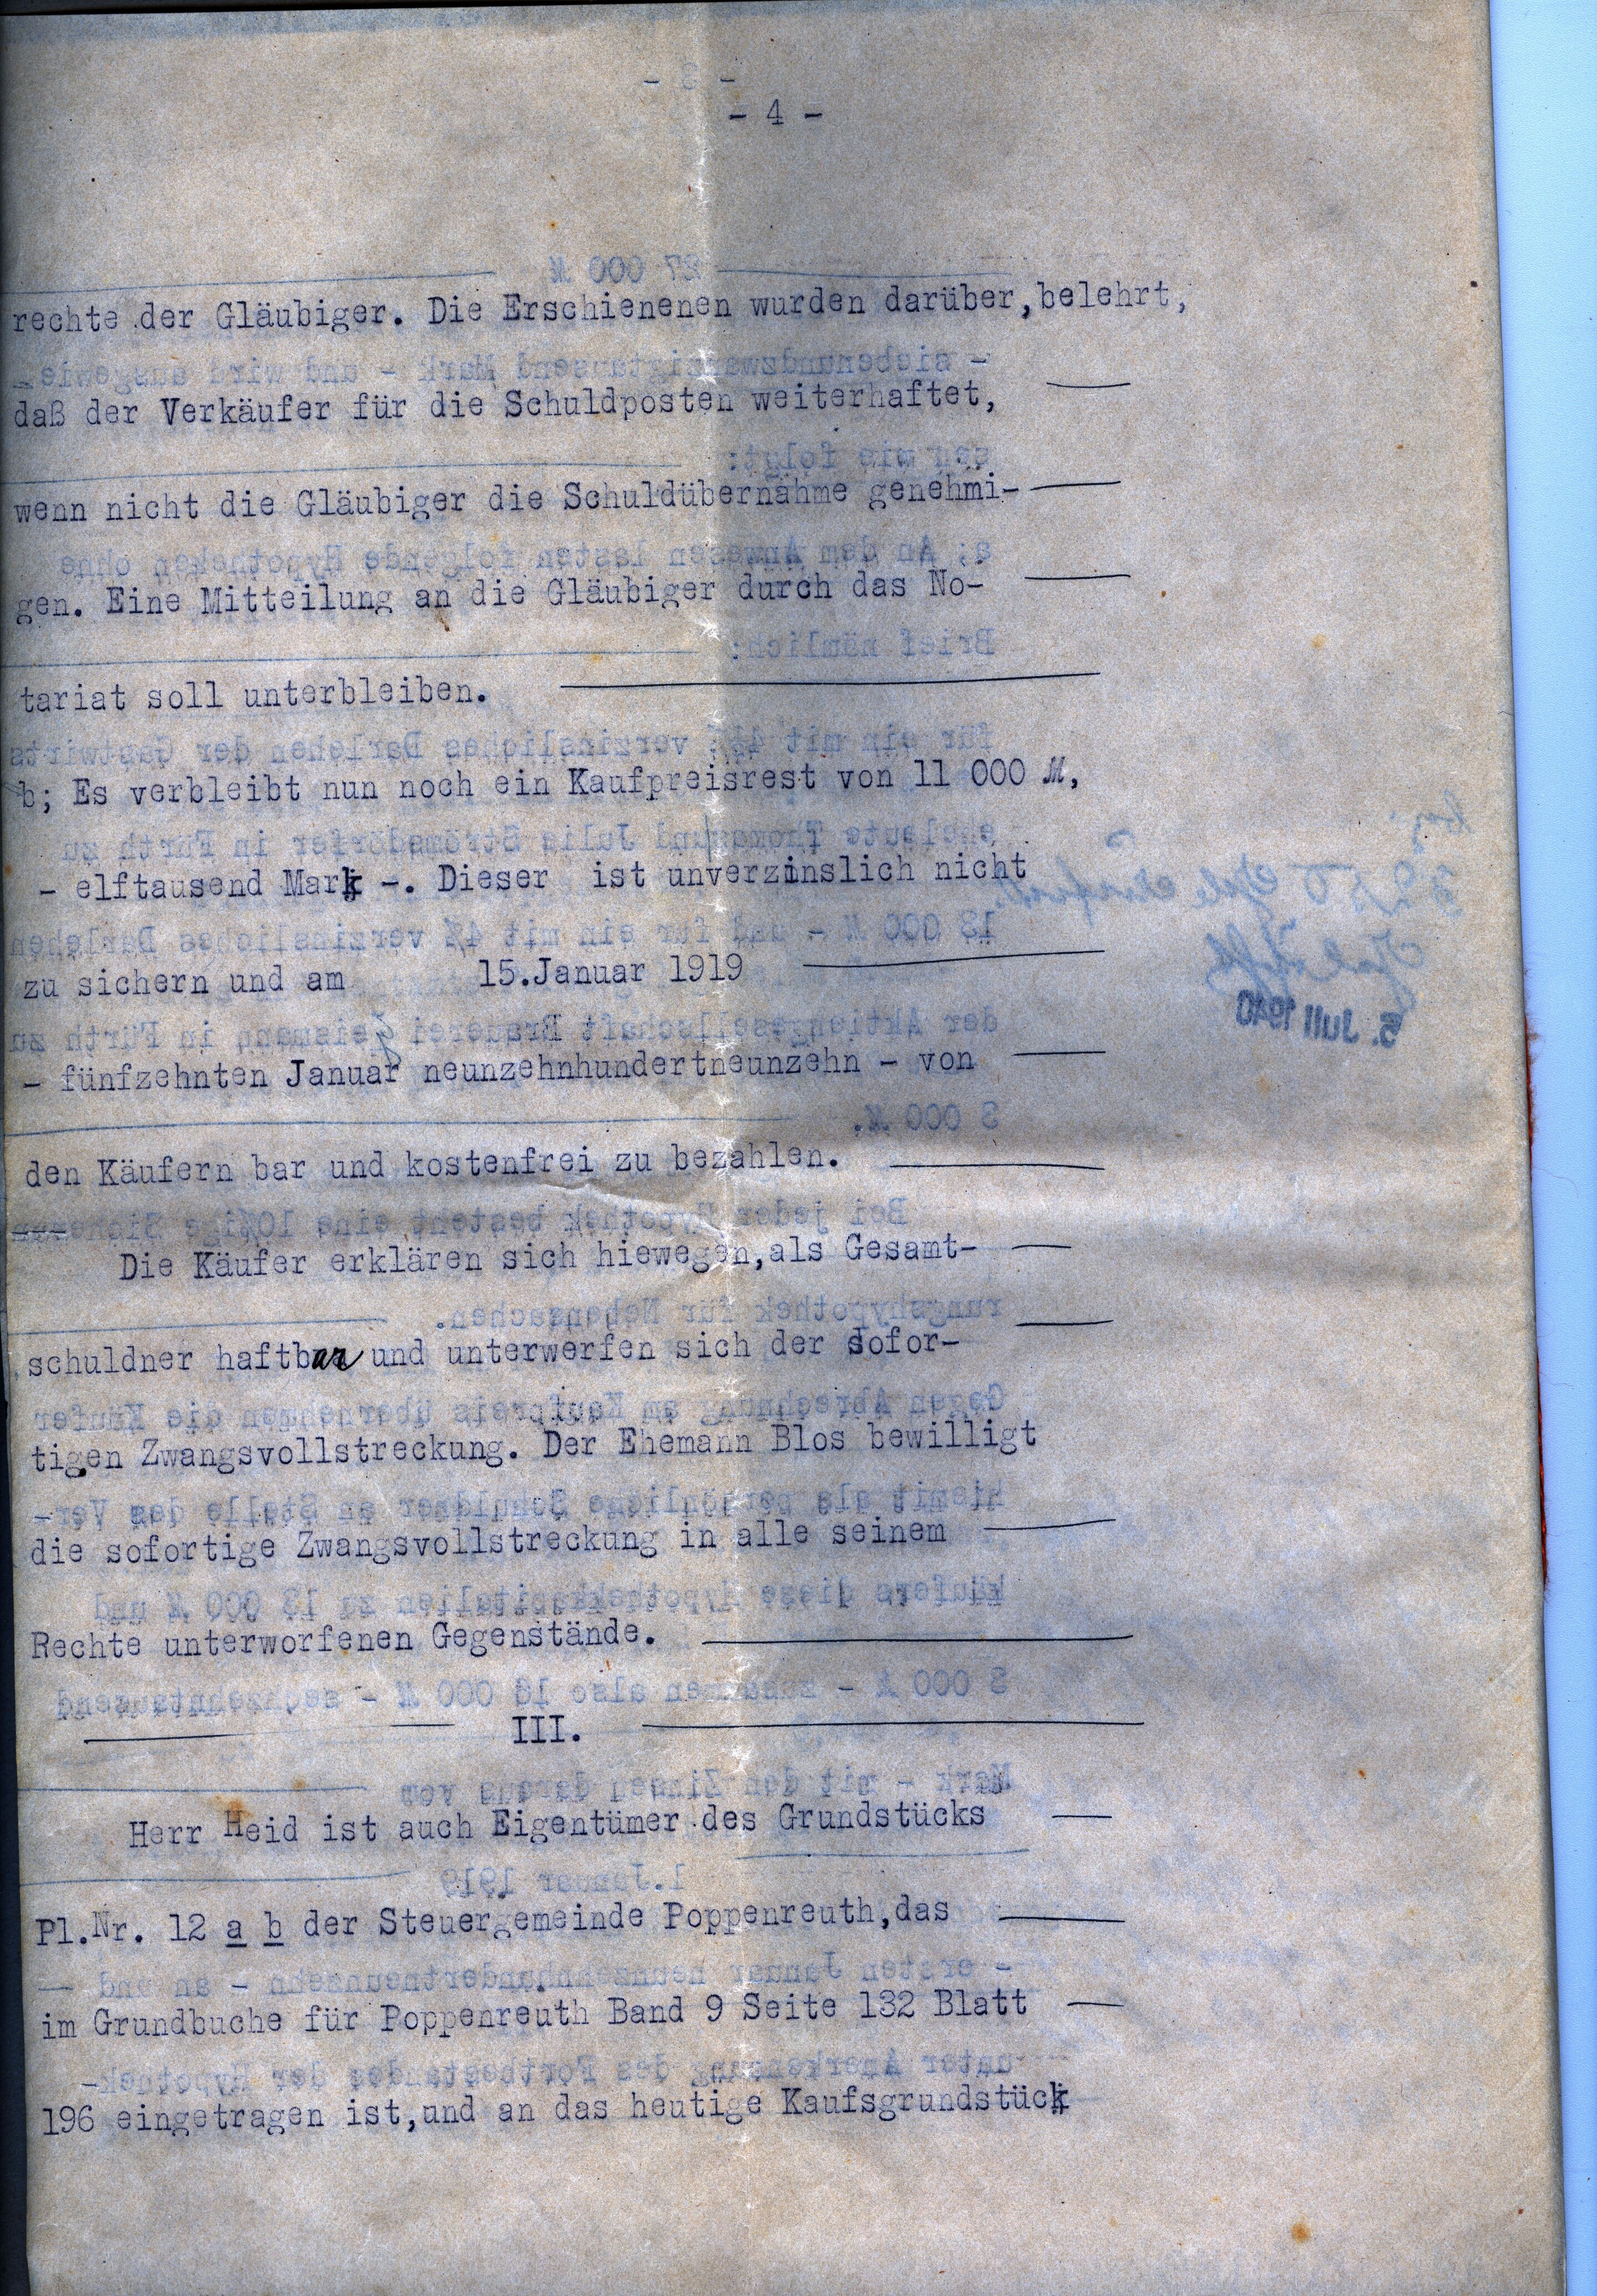 - 4 -
rechte der Gläubiger. Die Erschienenen wurden darüber, belehrt,
daß der Verkäufer für die Schuldposten weiterhaftet,
wenn nicht die Gläubiger die Schuldübernahme genehmi-
gen. Eine Mitteilung an die Gläubiger durch das No-
tariat soll unterbleiben.
b; Es verbleibt nun noch ein Kaufpreisrest von 11 000 M,
- elftausend Mark -. Dieser ist unverzinslich nicht
zu sichern und am 15.Januar 1919
- fünfzehnten Januar neunzehnhundertneunzehn - von
den Käufern bar und kostenfrei zu bezahlen.
Die Käufer erklären sich hiewegen, als Gesamt-
schuldner haftbar und unterwerfen sich der sofor-
tigen Zwangsvollstreckung. Der Ehemann Blos bewilligt
die sofortige Zwangsvollstreckung in alle seinem
Rechte unterworfenen Gegenstände.
III.
Herr Heid ist auch Eigentümer des Grundstücks
Pl.Nr. 12 a b der Steuergemeinde Poppenreuth, das
im Grundbuche für Poppenreuth Band 9 Seite 132 Blatt
196 eingetragen ist, und an das heutige Kaufsgrundstück